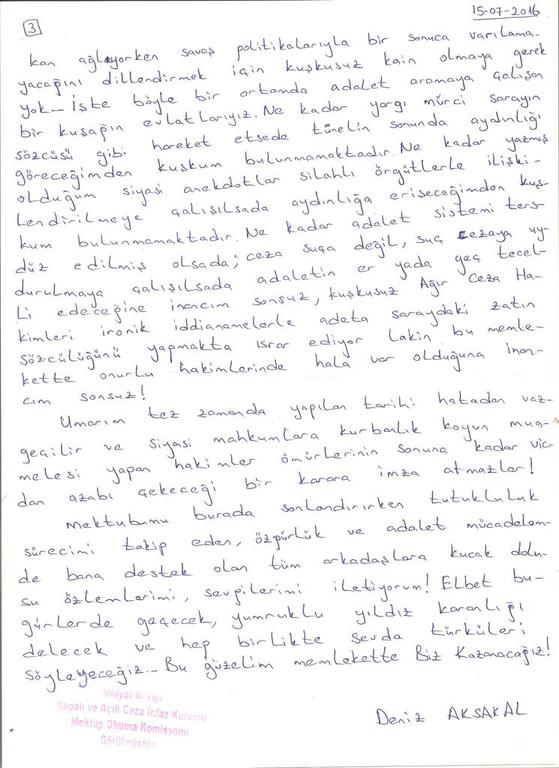 15-07-2016
3
kan ağlıyorken savaş politikalarıyla bir sonuca varılama-
yacağını dillendirmek için kuşkusuz kain olmaya gerek
yok- İşte böyle bir ortamda adalet aramaya çalışan
bir kuşağın evlatlarıyız. Ne kadar yargı mürci sarayın
sözcüsü gibi hareket etsede tünelin sonunda aydınlığı
göreceğimden kuşkum bulunmamaktadır. Ne kadar yazmış
olduğum siyasi anekdotlar silahlı örgütlerle ilişki-
lendirilmeye çalışılsada aydınlığa erişeceğimden kuş-
kum bulunmamaktadır. Ne kadar adalet sistemi ters-
düz edilmiş olsada; ceza suça değil, suç cezaya uy-
durulmaya çalışılsada adaletin er yada geç tecel-
li edeceğine inancım sonsuz, kuşkusuz Ağır Ceza Ha-
kimleri ironik iddianamelerle adeta saraydaki zatın
sözcülüğünü yapmakta ısrar ediyor Lakin bu memle-
kette onurlu hakimlerinde hala var olduğuna inan-
cım sonsuz!
Umarım tez zamanda yapılan tarihi hatadan vaz-
geçilir ve siyasi mahkumlara kurbanlık koyun mua-
melesi yapan hakimler ömürlerinin sonuna kadar vic-
dan azabı çekeceği bir karara imza atmazlar!
Mektubumu burada sonlandırırken tutukluluk
sürecimi takip eden, özgürlük ve adalet mücadelem-
de bana destek olan tüm arkadaşlara kucak dolu-
su özlemlerimi, sevgilerimi iletiyorum! Elbet bu-
günlerde geçecek, yumruklu yıldız karanlığı
delecek ve hep birlikte sevda türküleri
söyleyeceğiz... Bu güzelim memlekette Biz Kazanacağız!
Midyat M Tipi
Kapalı ve Açık Ceza İnfaz Kurumu
Mektup Okuma Komisyonu
Görülmüştür.
Deniz AKSAKAL